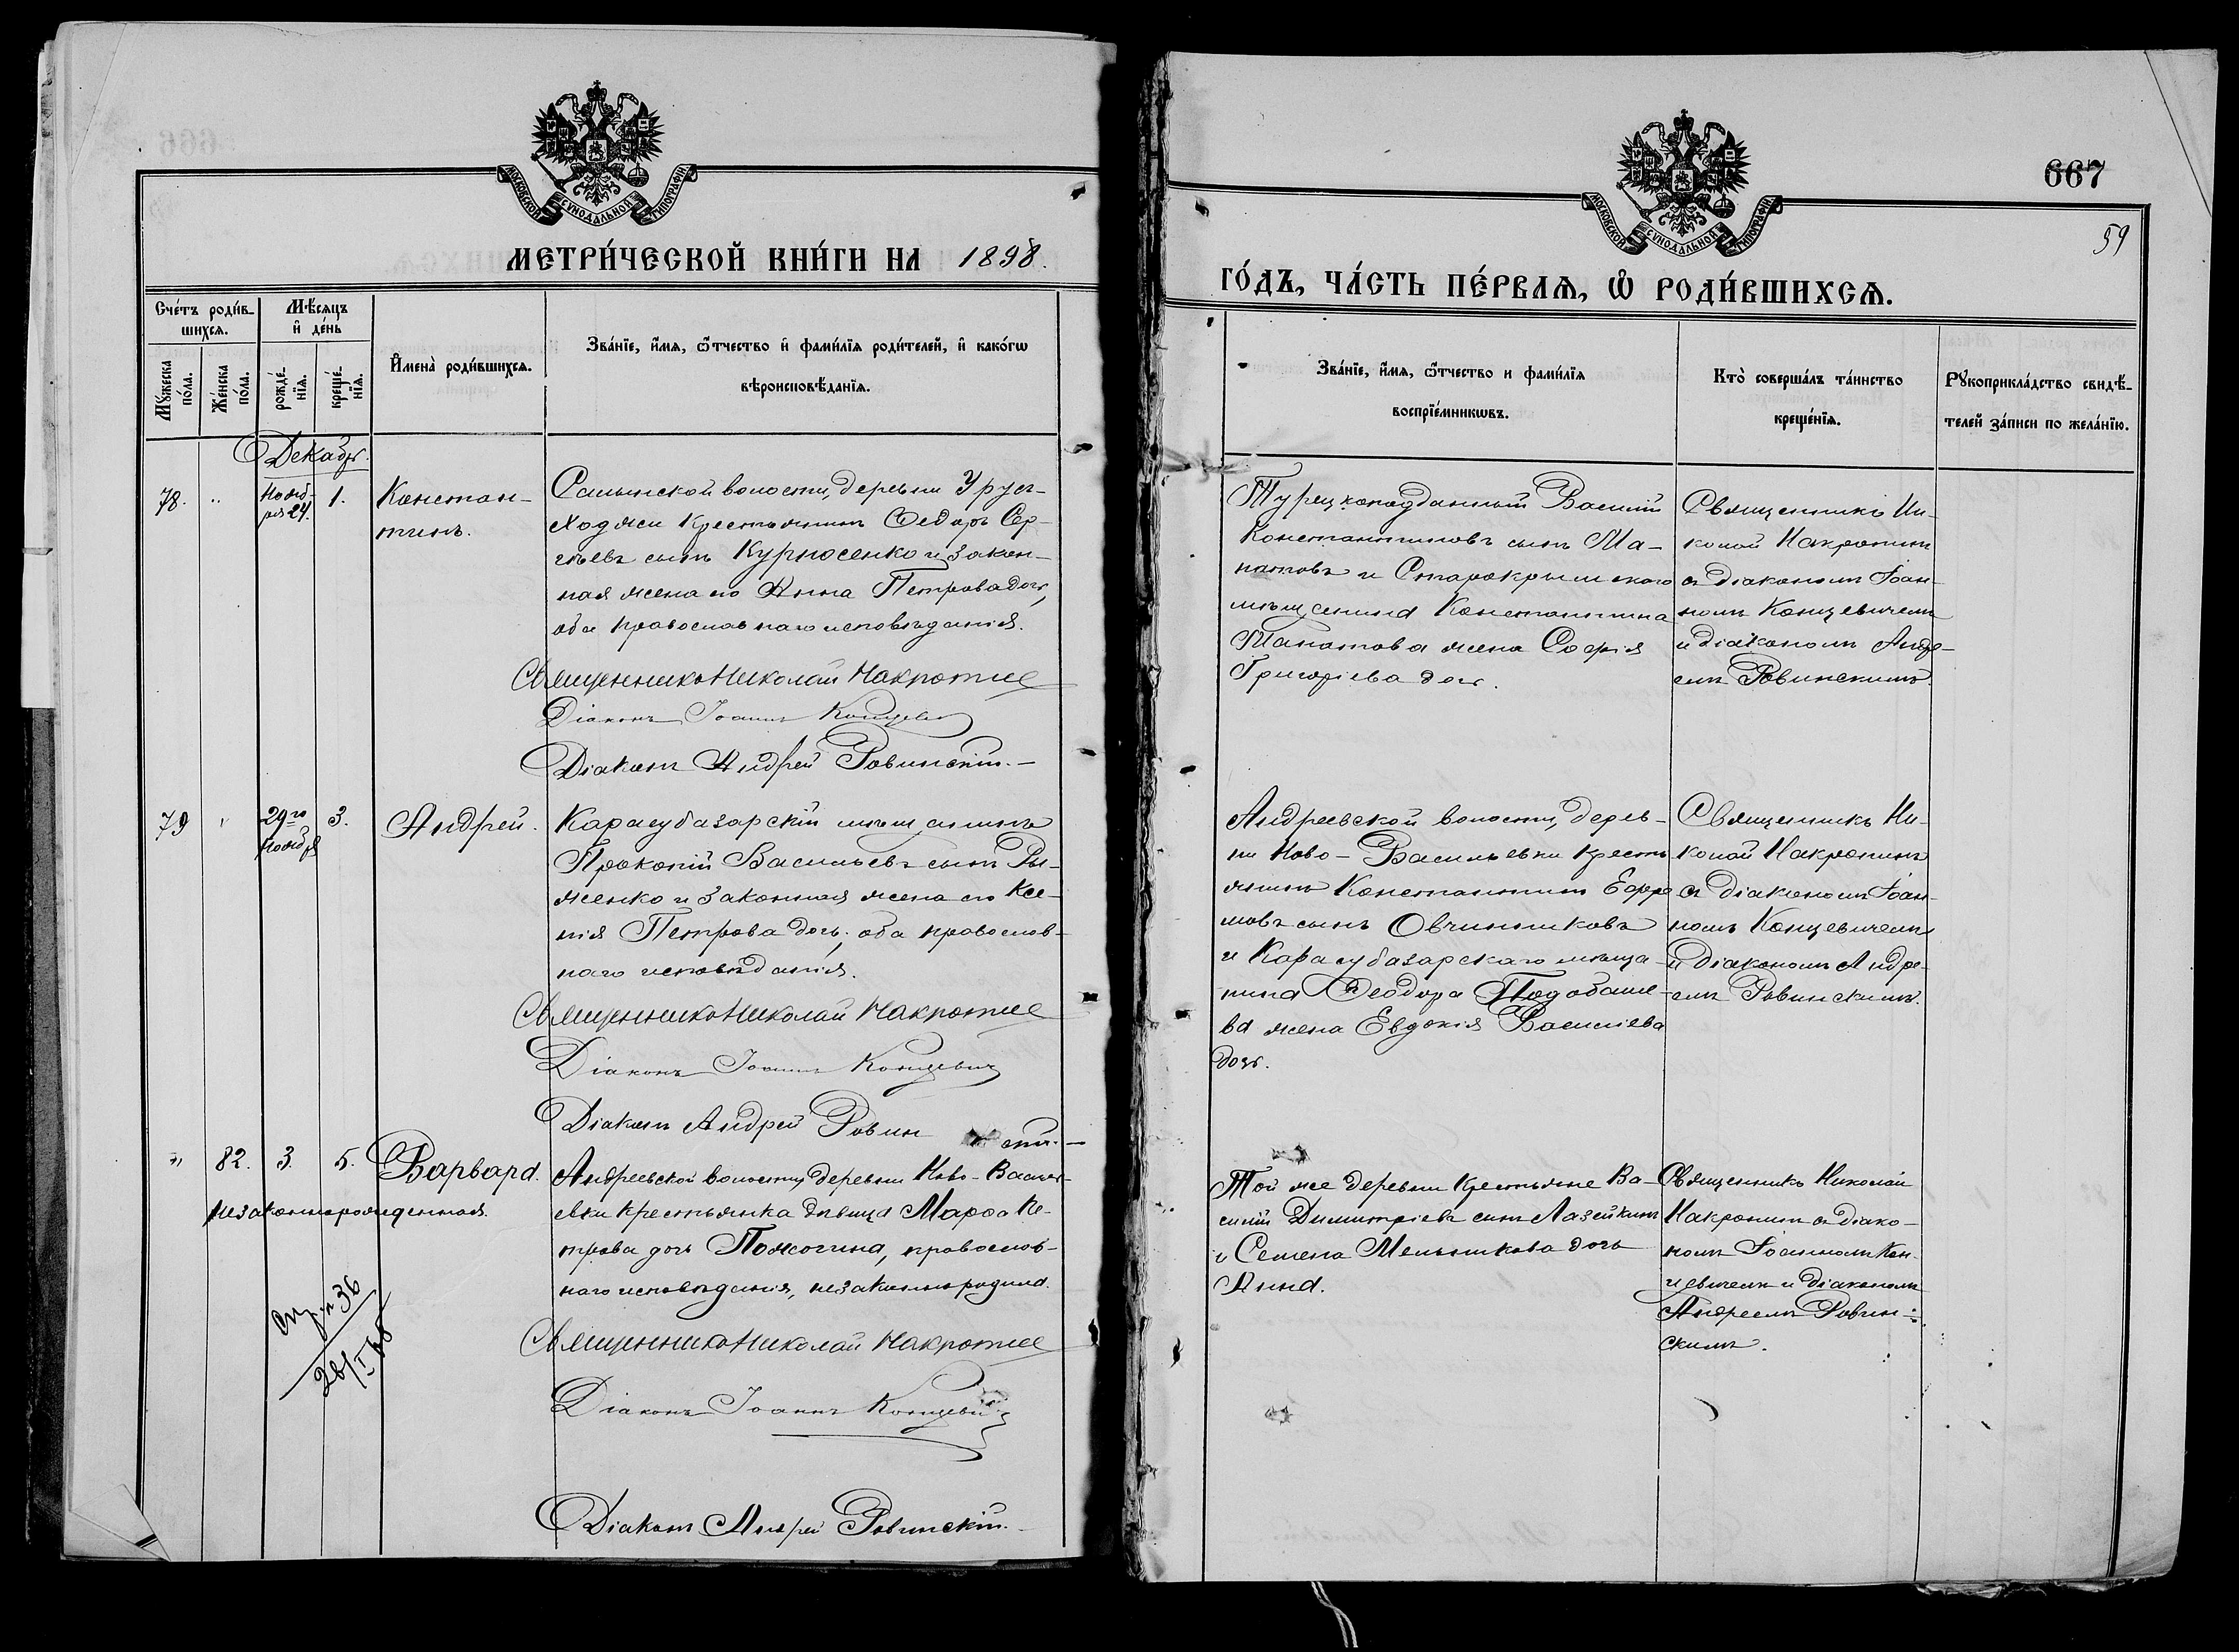 МОСКОВСКОЙ СѴНОДАЛЬНОЙ ТИПОГРАФІИ
МЕТРИ́ЧЕСКОЙ КНИ́ГИ НА 1898.
Сче́тъ роди́в-
шихсѧ.
Мѣ́сѧцъ
и҆ де́нь
Мꙋ́жеска
по́ла.
Же́нска
по́ла.
рожде́-
нїѧ.
креще́-
нїѧ.
И҆мена̀ роди́вшихсѧ.
Зва́нїе, и҆́мѧ, ѻ҆́тчество и҆ фами́лїѧ роди́телей, и҆ како́гѡ
вѣроисповѣ́данїѧ.
Декабрь.
78. " Нояб-
ря 24. 1. Констан-
тинъ.
Салынской волости, деревни Урус-
Ходжи крестьянинъ Ѳедоръ Сер-
гѣевъ сынъ Курносенко и закон-
ная жена его Анна Петрова дочь,
оба православнаго исповѣданія.
Священникъ Николай Макротинъ
Діаконъ Іоаннъ Концевич
Діаконъ Андрей Ровинскій.—
79 " 29го
Ноября 3. Андрей.
Карасубазарскій мѣщанинъ
Прокопій Васильевъ сынъ Ры-
женко и законная жена его Ксе-
нія Петрова дочь, оба православ-
наго исповѣданія.
Священникъ Николай Макротинъ
Діаконъ Іоаннъ Концевич
Діаконъ Андрей Ровин скій.—
" 82. 3. 5. Варвара.
незаконнорожденная.
Андреевской волости, деревни Ново-Василь-
евки крестьянка дѣвица Марѳа Пе-
трова дочь Пожогина, православ-
наго исповѣданія, незаконнородила.
36
28/I
Священникъ Николай Макротинъ
Діаконъ Іоаннъ Концевич
Діаконъ Андрей Ровинскій.
667
59
МОСКОВСКОЙ СѴНОДАЛЬНОЙ ТИПОГРАФІИ
ГО́ДЪ, ЧА́СТЬ ПЕ́РВАѦ, Ѽ РОДИ́ВШИХСѦ.
Зва́нїе, и҆́мѧ, ѻ҆́тчество и фами́лїѧ
воспрїе́мникѡвъ.
Кто̀ соверша́лъ та́инство
креще́нїѧ.
Рꙋкоприкла́дство свидѣ́-
телей за́писи по жела́нїю.
Турецкоподданный Василій
Константиновъ сынъ Ма-
натовъ и Старокрымскаго
мѣщанина Константина
Манатова жена Софія
Григоріева дочь.
Священникъ Ни-
колай Макротинъ
съ діакономъ Іоан-
номъ Концевичемъ
и діакономъ Андре-
емъ Ровинскимъ.
Андреевской волости, дерев-
ни Ново-Васильевки кресть
янинъ Константинъ Ефре
мовъ сынъ Овчинниковъ
и Карасубазарскаго мѣща-
нина Ѳеодора Подобаше-
ва жена Евдокія Василіева
дочь.
Священникъ Ни-
колай Макротинъ
съ діакономъ Іоан-
номъ Концевичемъ
и діакономъ Андре-
емъ Ровинскимъ.
Той же деревни крестьяне Ва-
силій Димитріевъ сынъ Лазейкинъ
и Семена Мельникова дочь
Анна.
Священникъ Николай
Макротинъ съ діако-
номъ Іоанномъ Кон-
цевичемъ и діакономъ
Андреемъ Ровин-
скимъ.